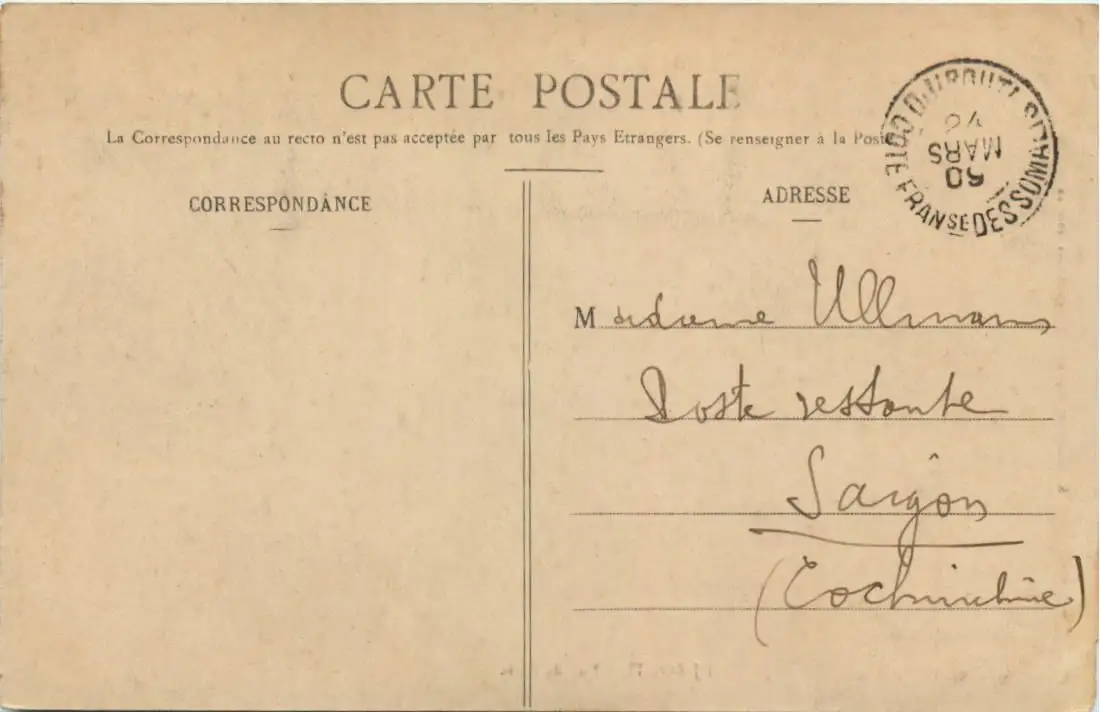 CARTE POSTALE
La Correspondance au recto n'est pas acceptée par tous les Pays Etrangers. (Se renseigner à la Poste
CORRESPONDANCE
ADRESSE
DJIBOUTI
COTE FRANSE DES SOMALIS
MARS
Madame Ullmann
Poste restante
Saïgon
(Cochinchine)